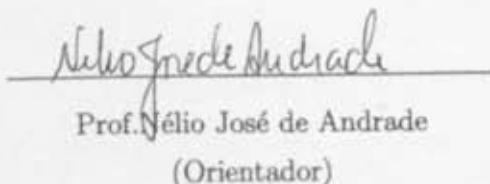 Nélio José de Andrade
Prof.Nélio José de Andrade
(Orientador)